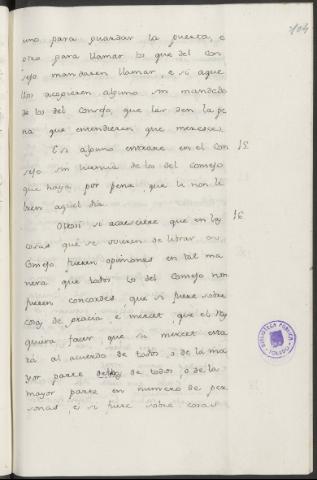 104
uno para guardar la puerta, e
otro para llamar los que del con
sejo mandaren llamar, e si aque
llos acogieren alguno sin mandado
de los del consejo, que les den la pe
na que entendieren que merescen.
E si alguno entrare en el con 15.
sejo sin licencia de los del consejo
que haya por pena, que li non li
bren aquel dia.
Otrosi si acaesciere que en las 16.
cosas que se ovieren de librar en
Consejo fueren opiniones en tal ma
nera que todos los del Consejo non
fueren concordes, que si fuere sobre
cosa de gracia e mercet, que el Rey
quiera facer que su mercet esta
rá al acuerdo de todos, o de la ma
yor parte de todos, o de la
mayor parte en numero de per
sonas e si fuere sobre cosas
BIBLIOTECA PUBLICA
TOLEDO